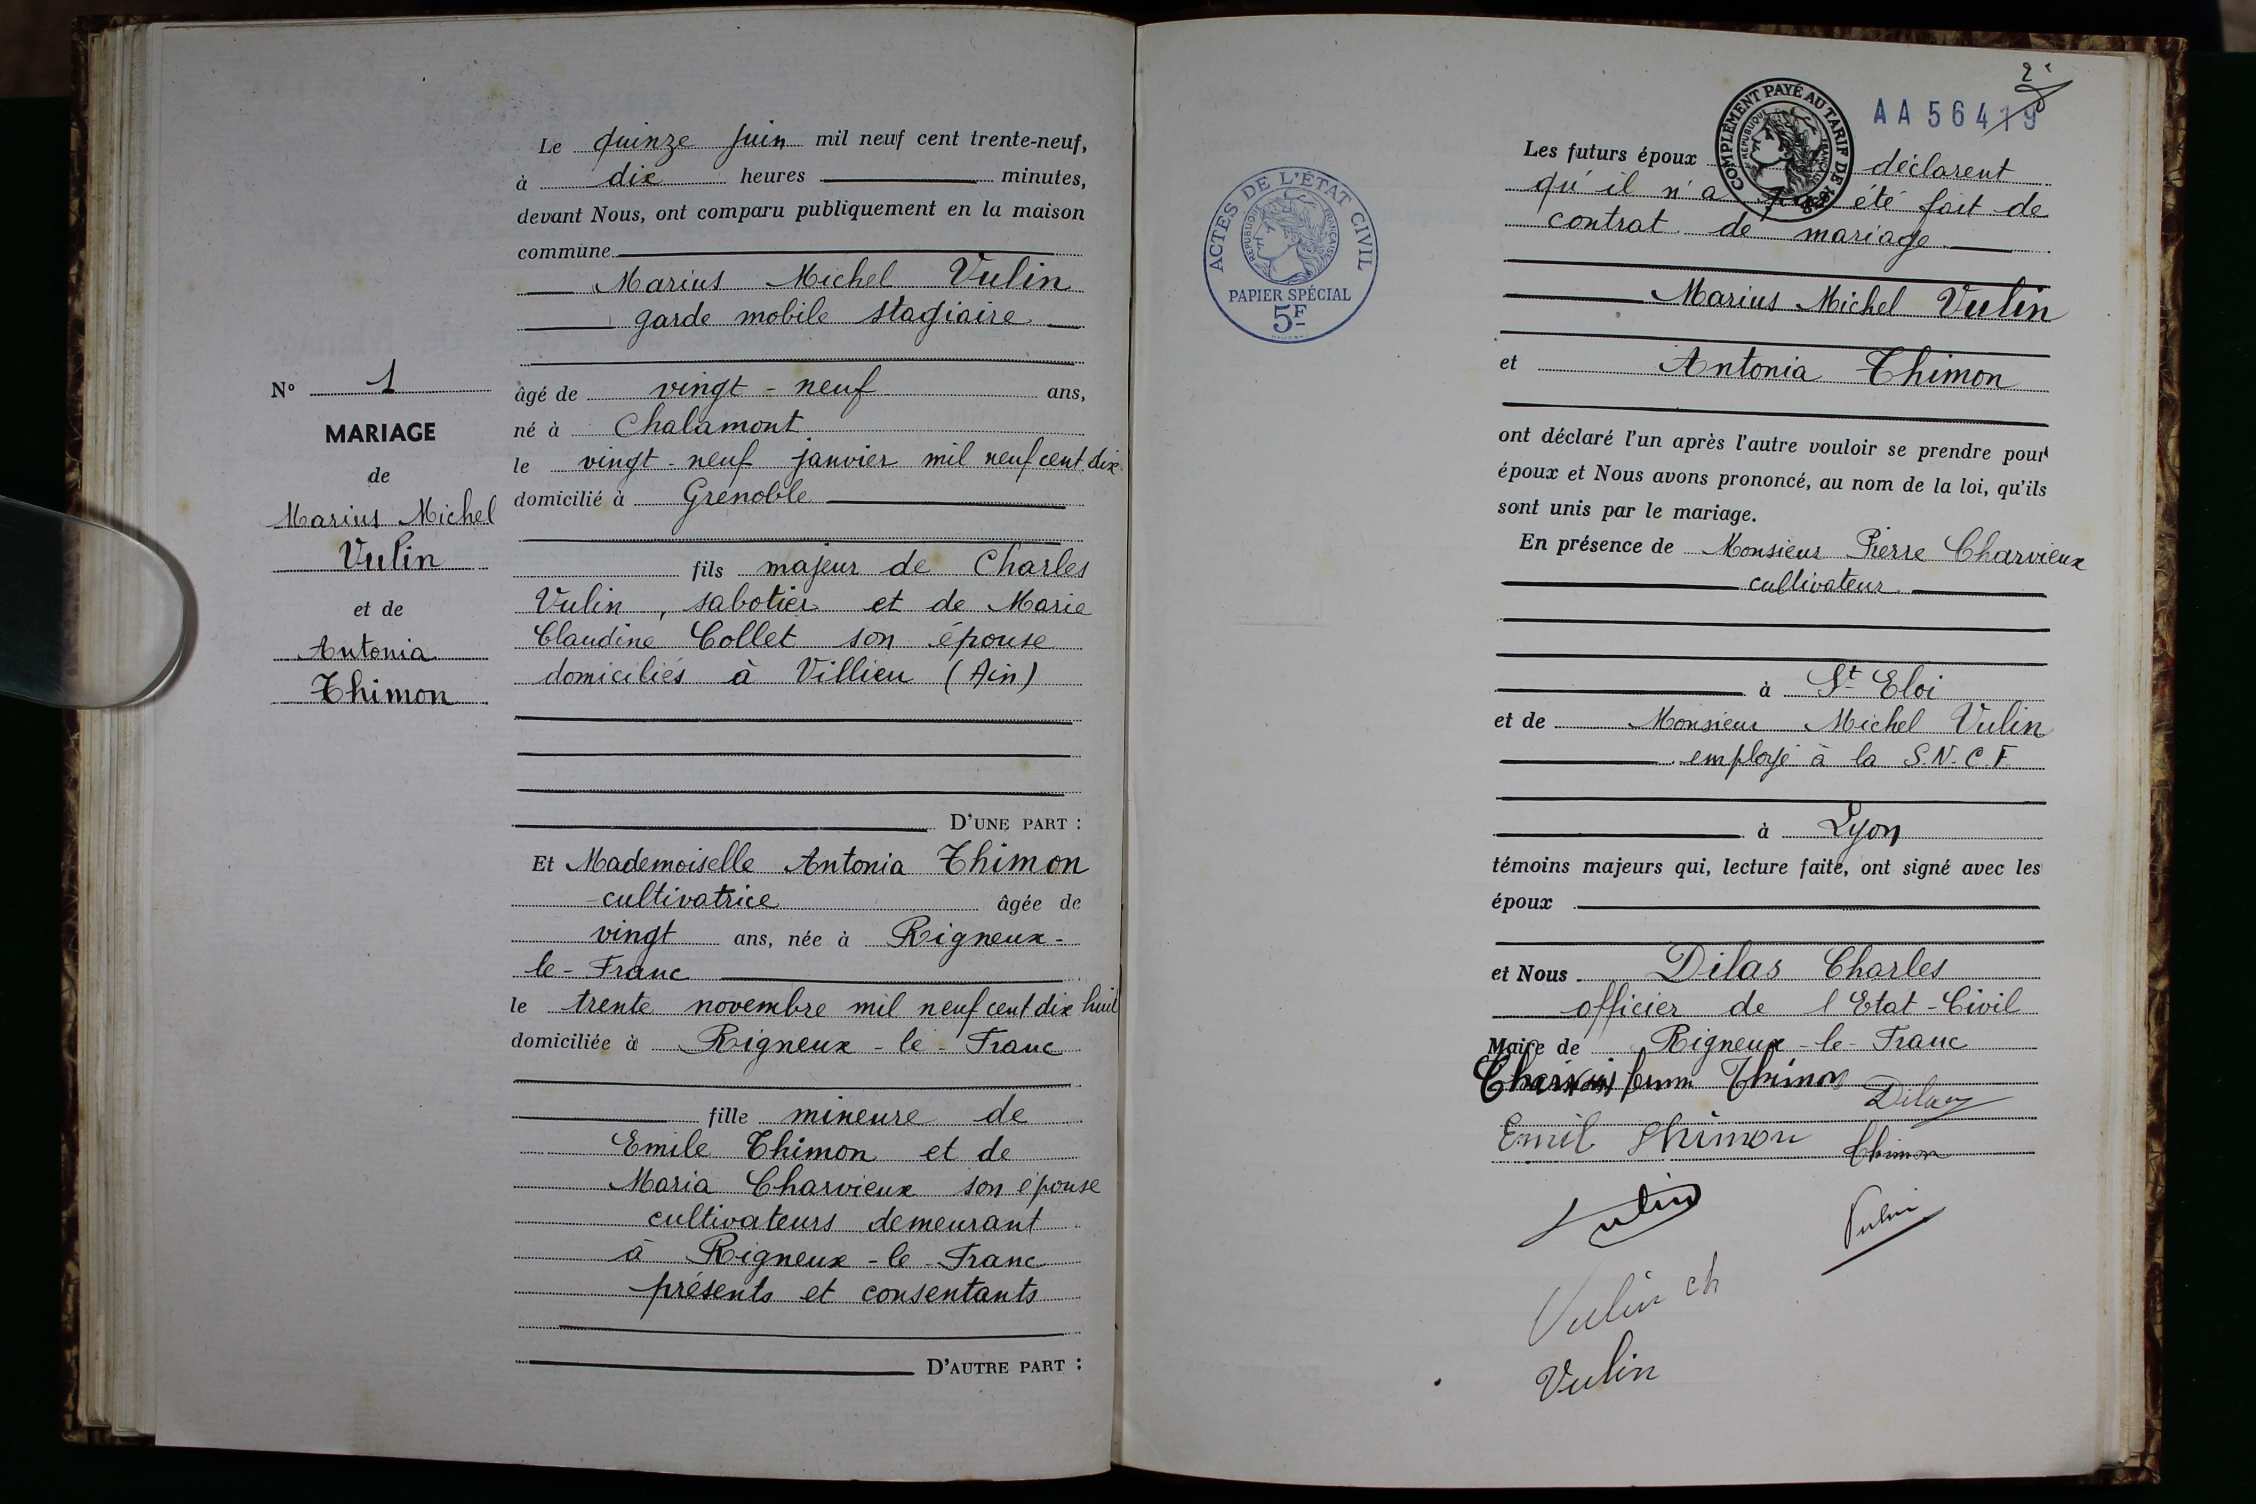 Le quinze juin mil neuf cent trente-neuf,
à dix heures minutes,
devant Nous, ont comparu publiquement en la maison
commune
Marius Michel Vulin
garde mobile stagiaire
N° 1
âgé de vingt-neuf ans,
MARIAGE
né à Chalamont
de
le vingt-neuf janvier mil neuf cent dix
Marius Michel
domicilié à Grenoble
Vulin
fils majeur de Charles
et de
Vulin, sabotier et de Marie
Antonia
Claudine Collet son épouse
Thimon
domiciliés à Villieu (Ain)
D'UNE PART :
Et Mademoiselle Antonia Thimon
cultivatrice âgée de
vingt ans, née à Rigneux-
le-Franc
le trente novembre mil neuf cent dix huit
domiciliée à Rigneux-le-Franc
fille mineure de
Emile Thimon et de
Maria Charvieux son épouse
cultivateurs demeurant
à Rigneux-le-Franc
présents et consentants
D'AUTRE PART :
ACTES DE L'ÉTAT CIVIL
RÉPUBLIQUE FRANÇAISE
PAPIER SPÉCIAL
5F
2
COMPLÉMENT PAYÉ AU TARIF DE 1938
RÉPUBLIQUE FRANÇAISE
AA56419
Les futurs époux déclarent
qu'il n'a pas été fait de
contrat de mariage
Marius Michel Vulin
et Antonia Thimon
ont déclaré l'un après l'autre vouloir se prendre pour
époux et Nous avons prononcé, au nom de la loi, qu'ils
sont unis par le mariage.
En présence de Monsieur Pierre Charvieux
cultivateur
à St Eloi
et de Monsieur Michel Vulin
employé à la S.N.C.F.
à Lyon
témoins majeurs qui, lecture faite, ont signé avec les
époux
et Nous Dilas Charles
officier de l'Etat-Civil
Maire de Rigneux-le-Franc
Thimon
Dilas
Emil Thimon
Thimon
Vulin
Vulin
Vulin ch
Vulin